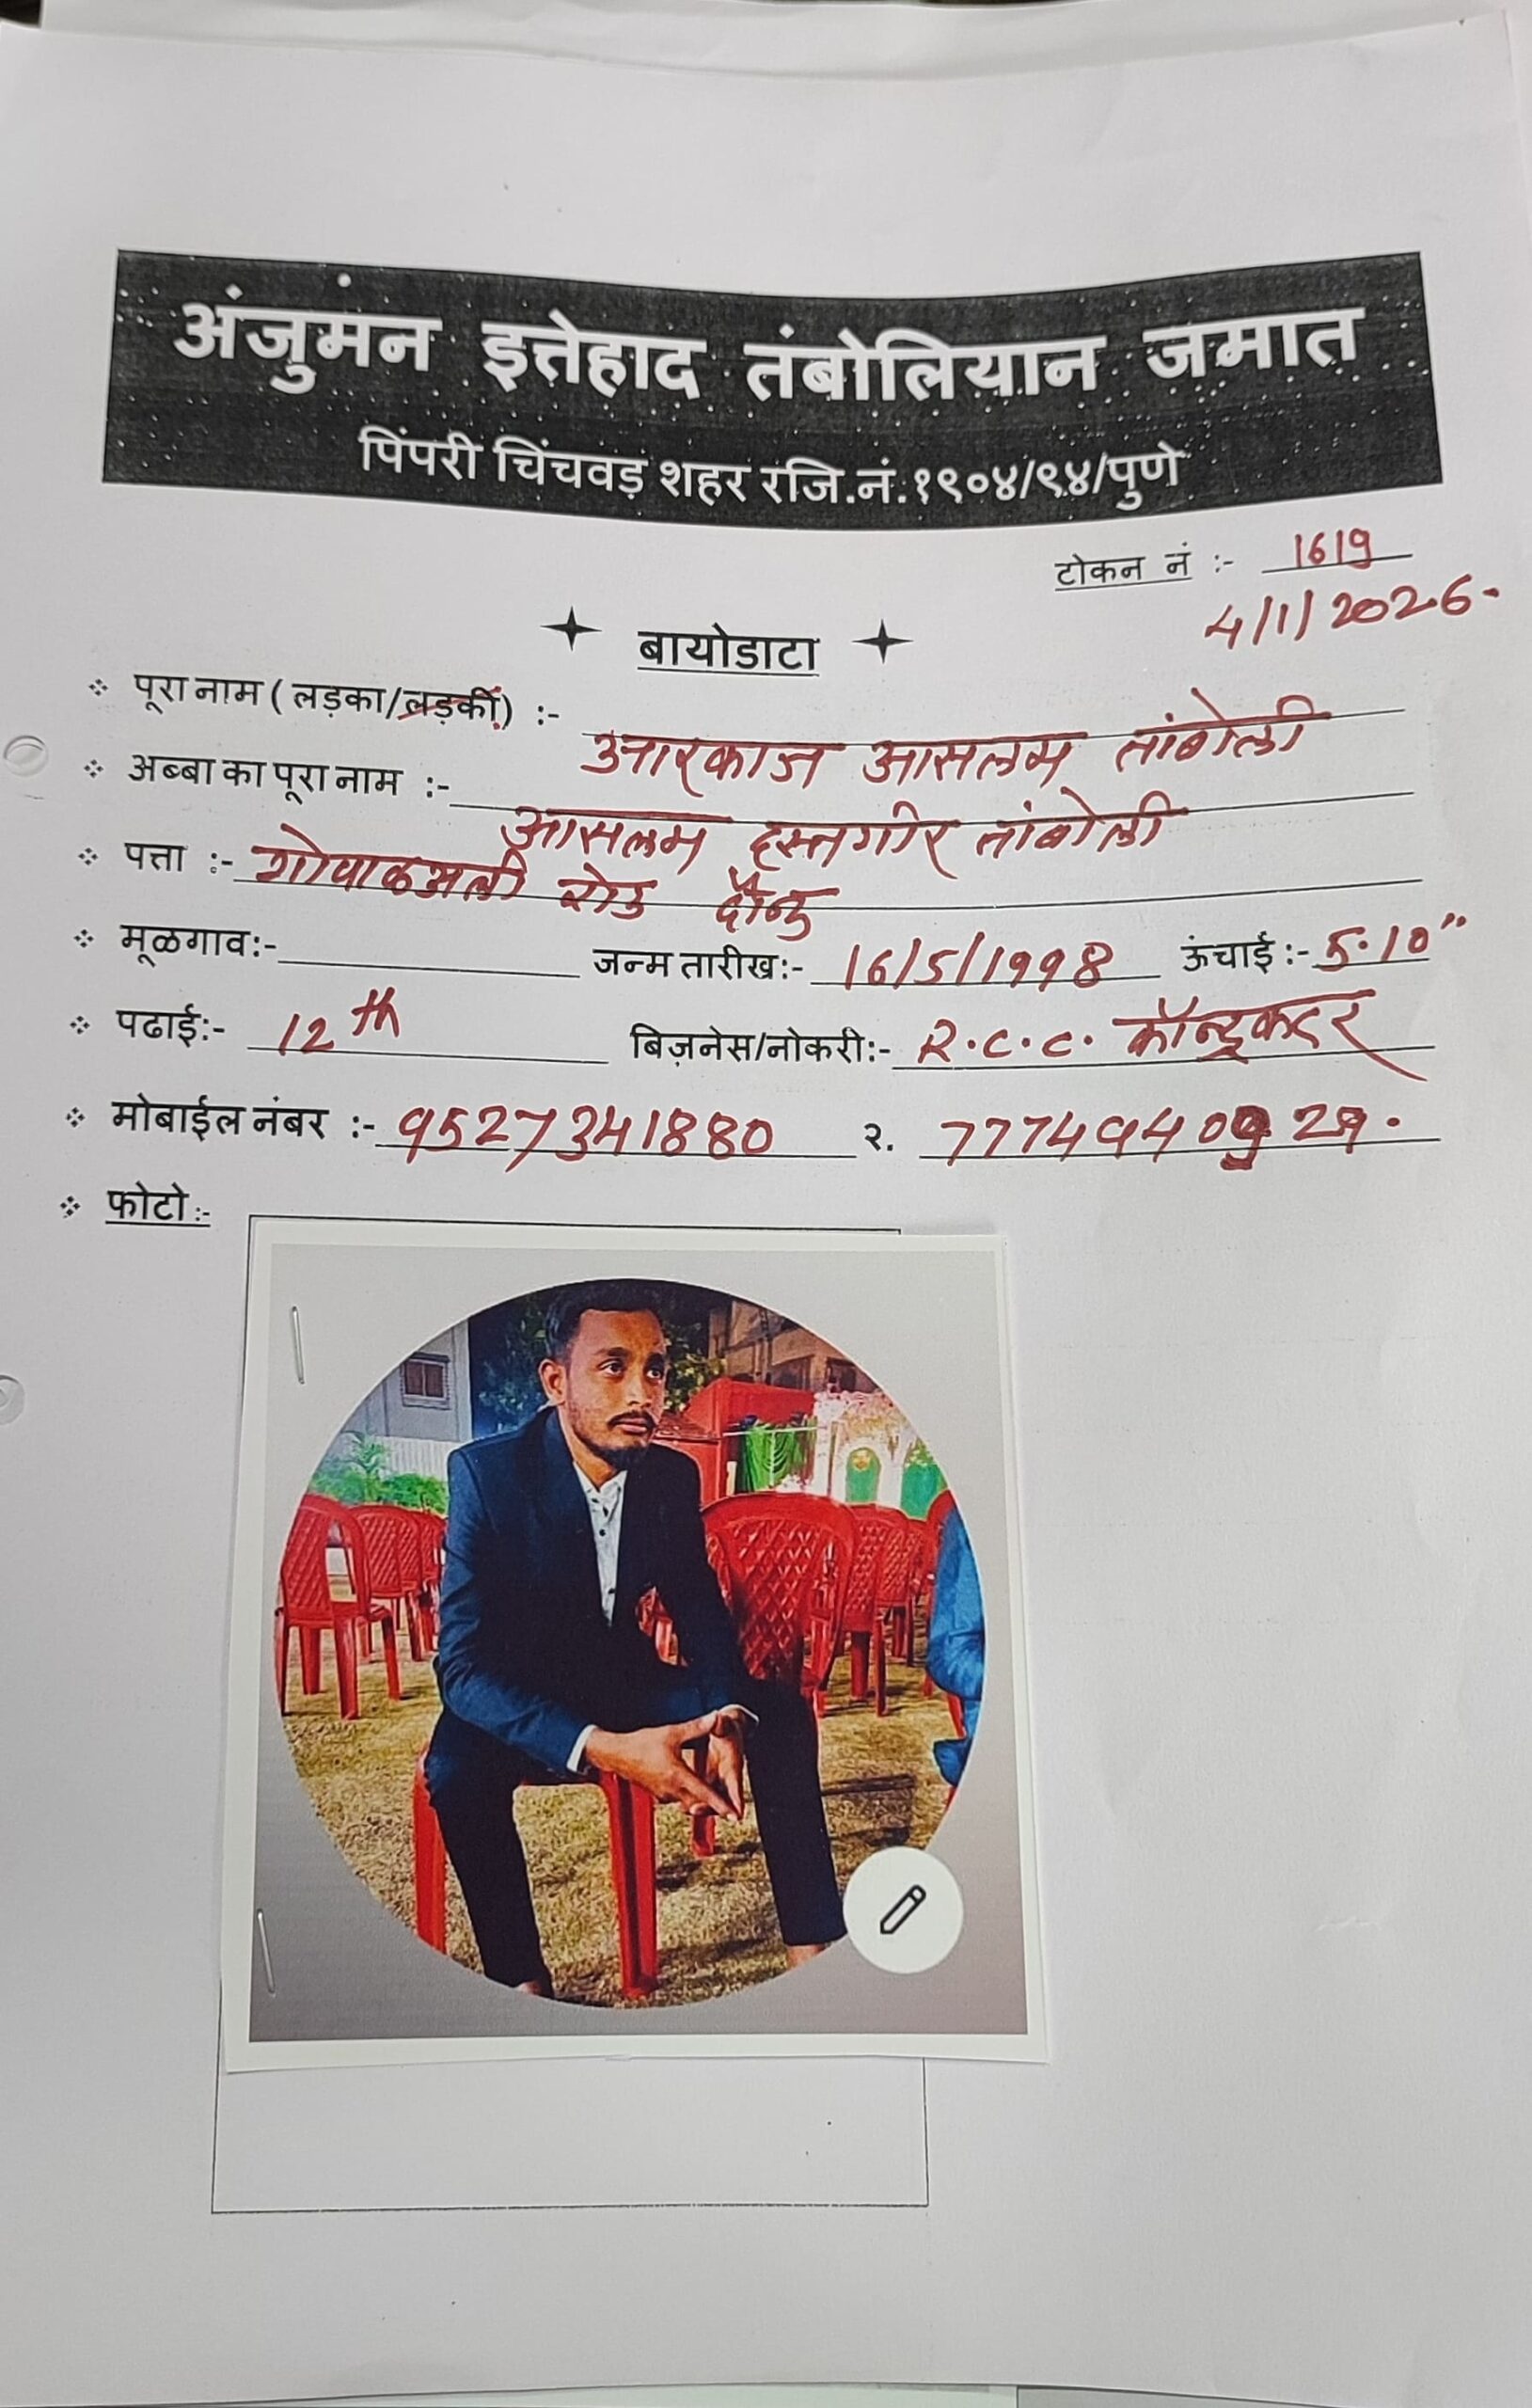 अंजुमन इत्तेहाद तंबोलियान जमात
पिंपरी चिंचवड़ शहर रजि.नं.१९०४/९४/पुणे
टोकन नं :- 1619
4/1/2026.
बायोडाटा
पूरा नाम ( लड़का/लड़की) :-
आसलम तांबोली
अब्बा का पूरा नाम :-
आसलम दस्तगीर तांबोली
पत्ता :- रोड
मूळगाव:- जन्म तारीख:- 16/5/1998 ऊंचाई :- 5.10"
पढाई:- 12th बिज़नेस/नोकरी:- R.C.C. कॉन्ट्रक्टर
मोबाईल नंबर :- 9527341880 २.
फोटो :-